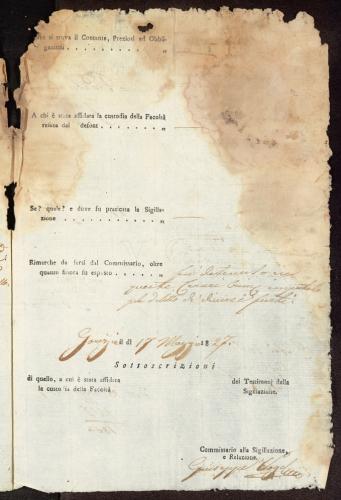 si trova il Contante, Preziosi ed Obbli-
gazioni . . . . . . . . . „
A chi è stata affidata la custodia della Facoltà
relitta dal defont . . . . . . . „
Se? quale? e dove fu praticata la Sigilla-
zione . . . . . . . . . . . „
Rimarche da farsi dal Commissario, oltre
quanto finora fu esposto . . . . . . „
fu detenuto
queste
Gorizia il dì 17 Maggio 1827.
Sottoscrizioni
di quello, a chi è stata affidata
la custodia della Facoltà.
dei Testimoni della
Sigillazione.
Commissario alla Sigillazione,
e Relazione.
Giuseppe